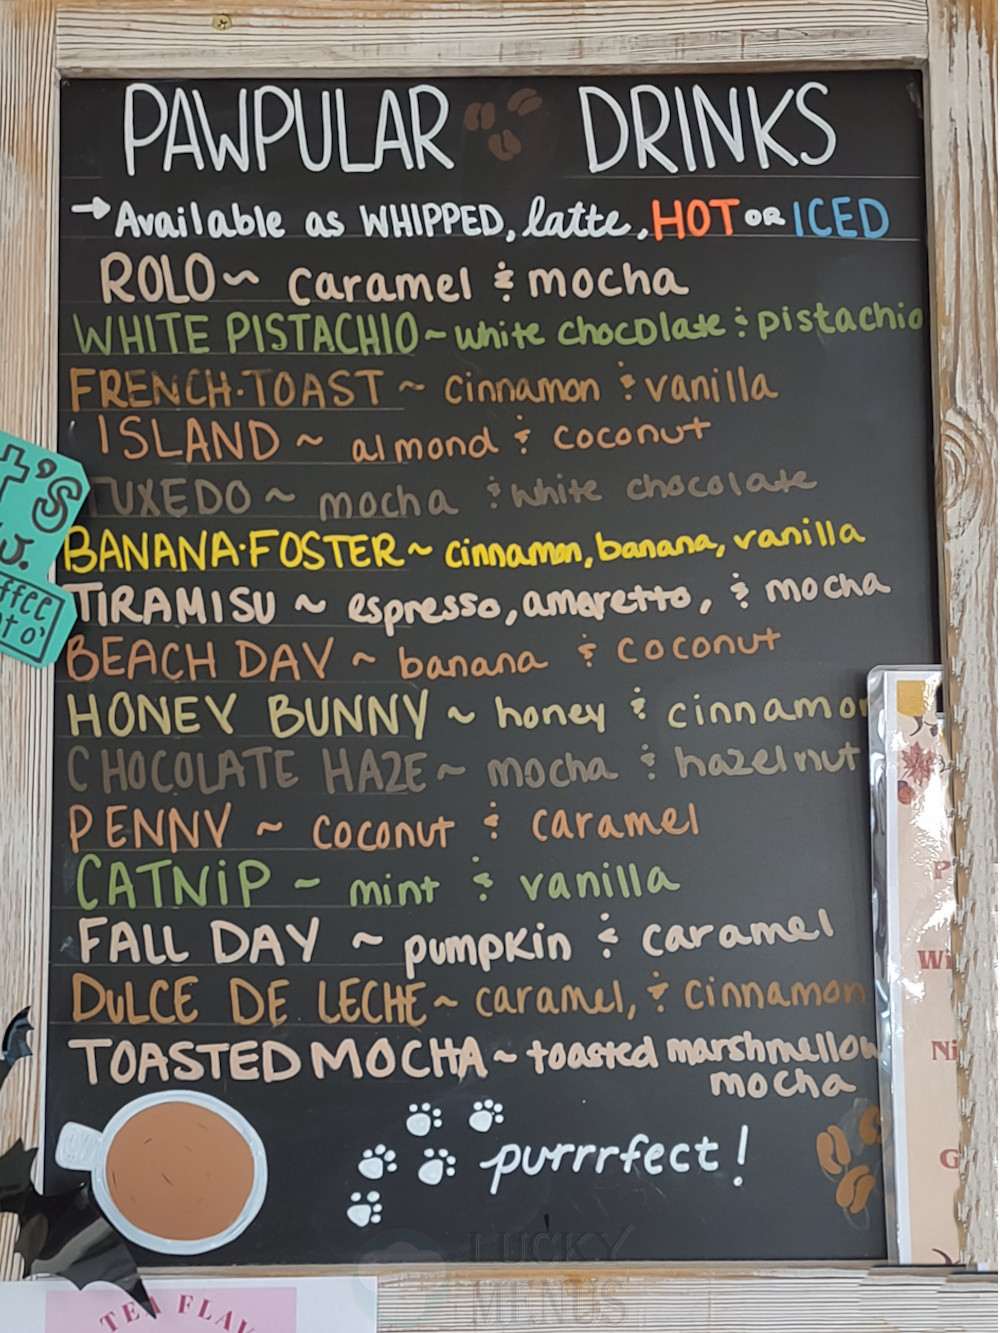 PAWPULAR DRINKS
→ Available as WHIPPED, latte, HOT OR ICED
ROLO ~ caramel & mocha
WHITE PISTACHIO ~ white chocolate & pistachio
FRENCH·TOAST ~ cinnamon & vanilla
ISLAND ~ almond & coconut
TUXEDO ~ mocha & white chocolate
BANANA·FOSTER ~ cinnamon, banana, vanilla
TIRAMISU ~ espresso, amaretto, & mocha
BEACH DAY ~ banana & coconut
HONEY BUNNY ~ honey & cinnamon
CHOCOLATE HAZE ~ mocha & hazelnut
PENNY ~ coconut & caramel
CATNiP ~ mint & vanilla
FALL DAY ~ pumpkin & caramel
DULCE DE LECHE ~ caramel, & cinnamon
TOASTED MOCHA ~ toasted marshmellow
mocha
purrrfect!
t's
ffee
to'
P
Wi
Ni
G
LUCKY
MENUS
TEA FLAV